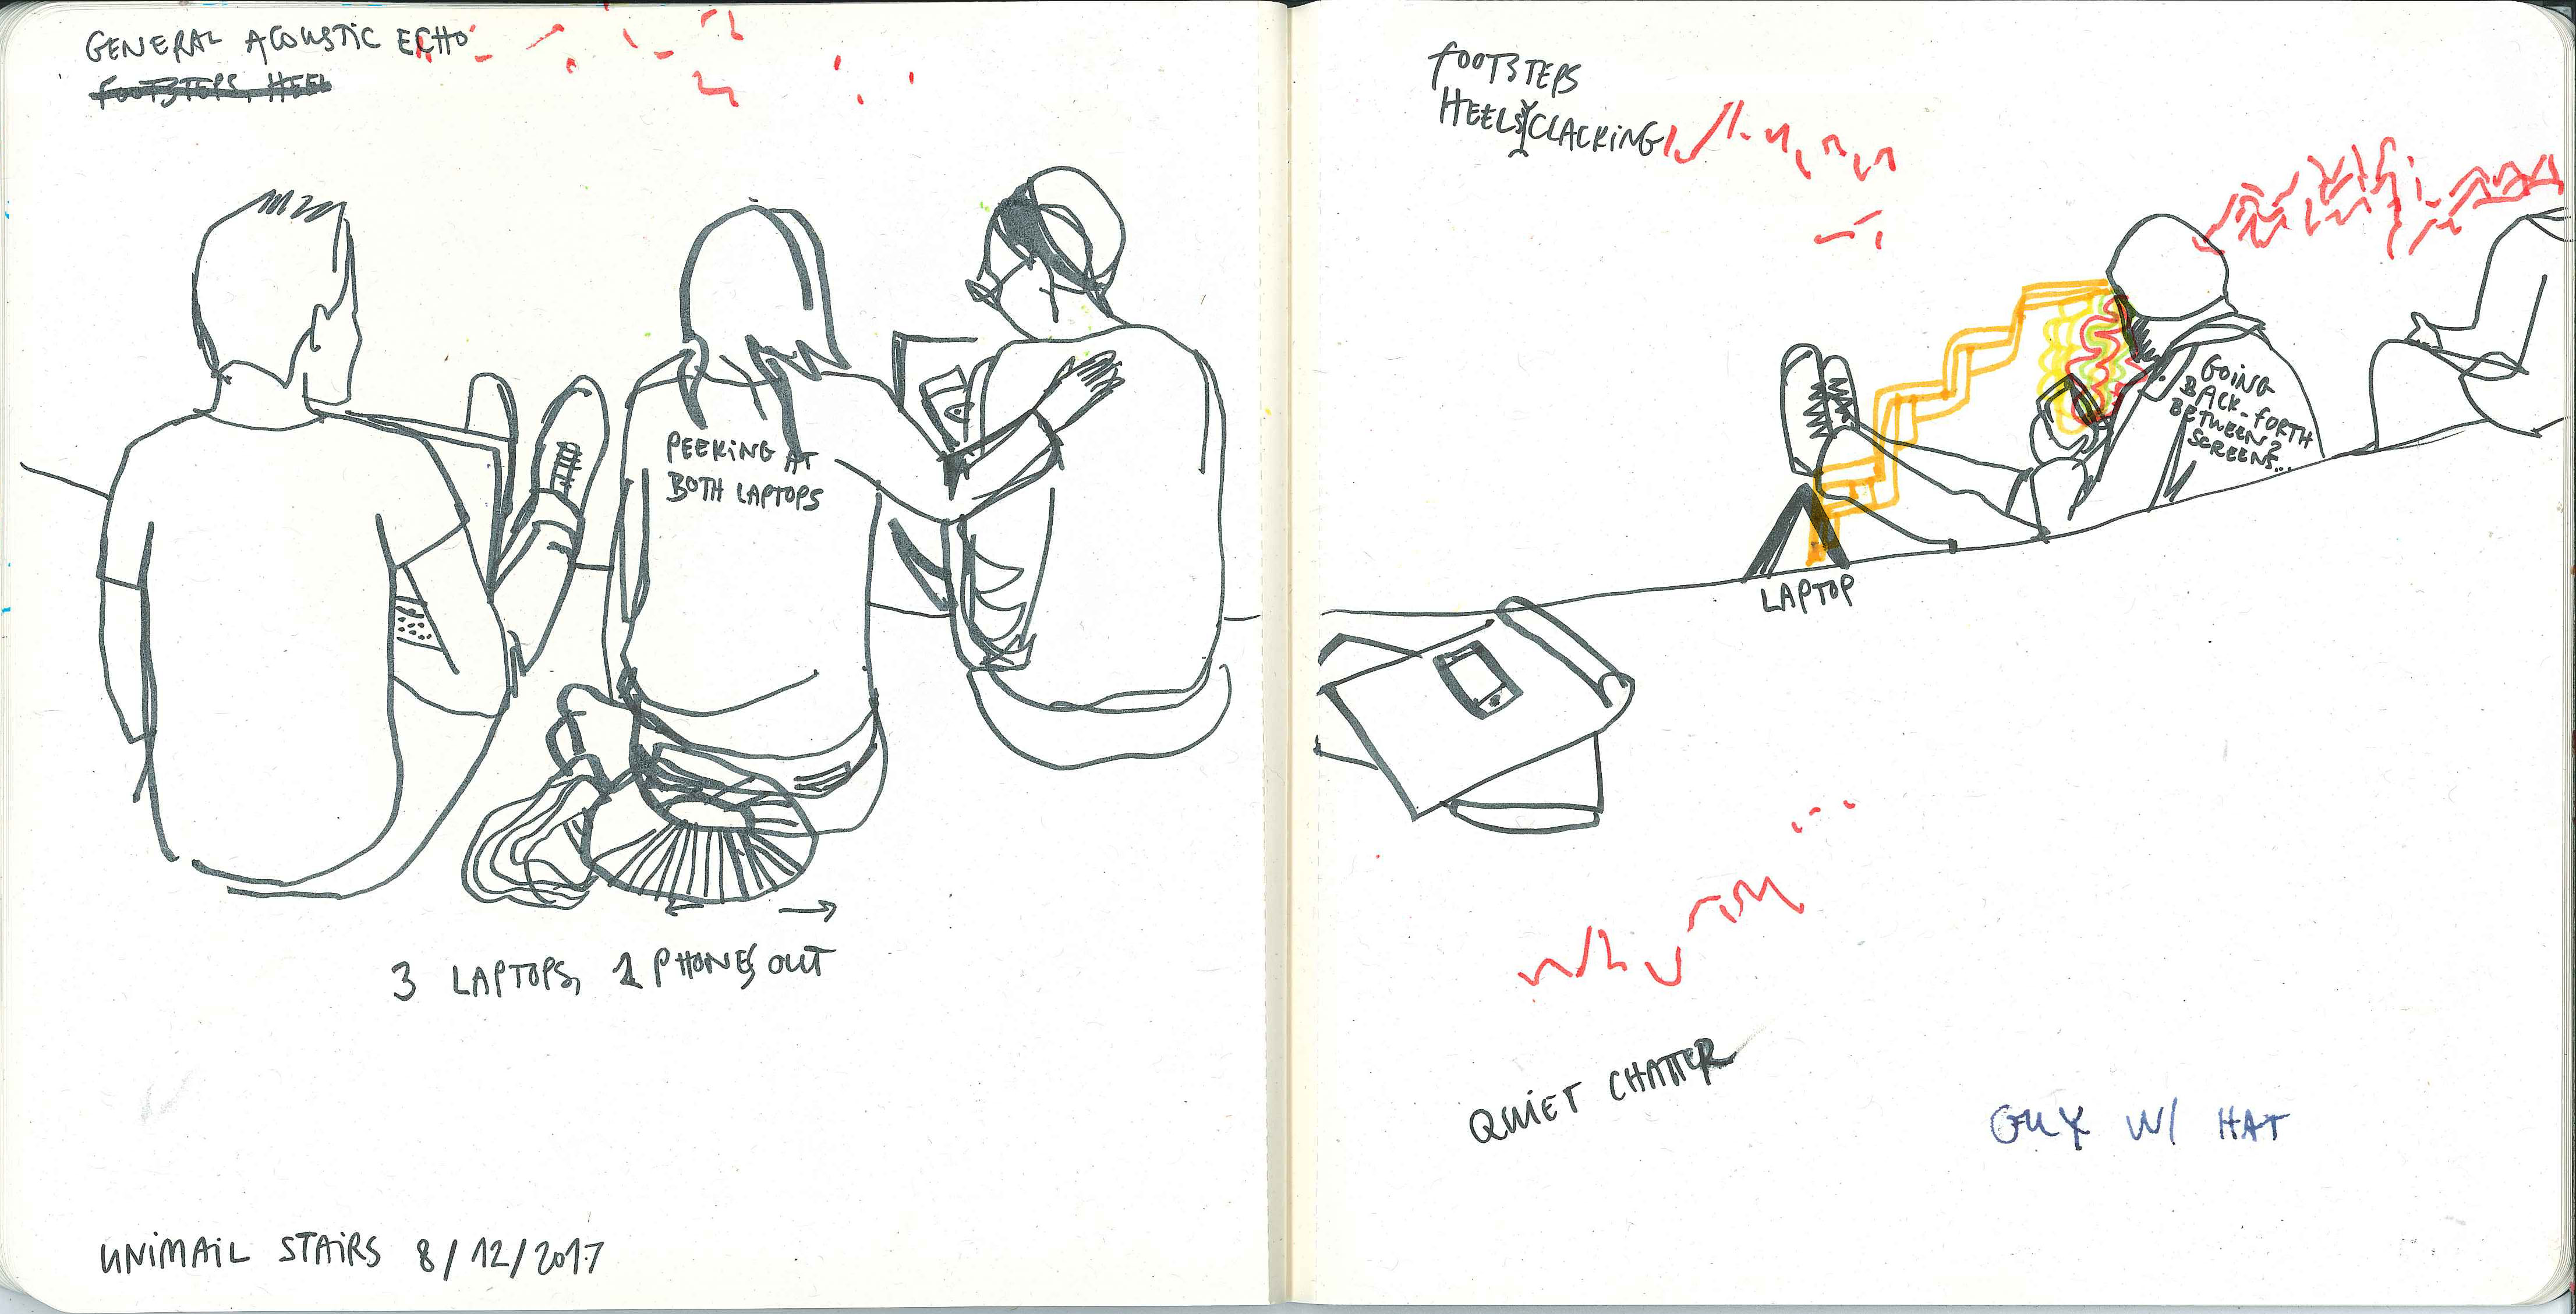 GENERAL ACOUSTIC ECHO
FOOTSTEPS, HEEL
PEEKING AT
BOTH LAPTOPS
3 LAPTOPS, 2 PHONES OUT
UNIMAIL STAIRS 8/12/2017
FOOTSTEPS
HEELS CLACKING
GOING
BACK-FORTH
BETWEEN 2
SCREENS...
LAPTOP
QUIET CHATTER
GUY W/ HAT